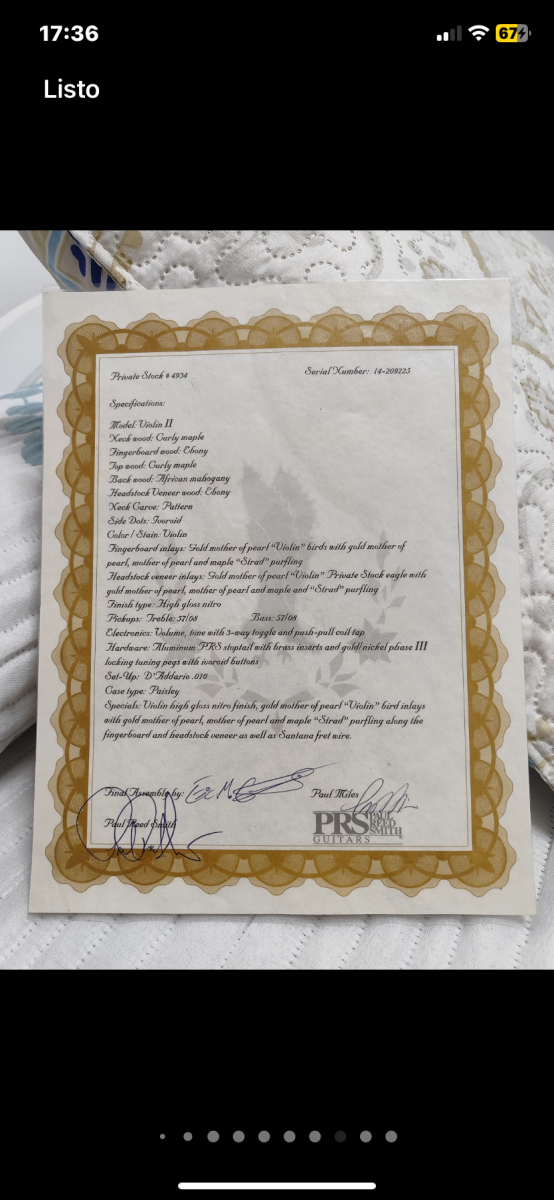 17:36
67
Listo
Private Stock # 4934
Serial Number: 14-209225
Specifications:
Model: Violin II
Neck wood: Curly maple
Fingerboard wood: Ebony
Top wood: Curly maple
Back wood: African mahogany
Headstock Veneer wood: Ebony
Neck Carve: Pattern
Side Dots: Ivoroid
Color / Stain: Violin
Fingerboard inlays: Gold mother of pearl "Violin" birds with gold mother of
pearl, mother of pearl and maple "Strad" purfling
Headstock veneer inlays: Gold mother of pearl "Violin" Private Stock eagle with
gold mother of pearl, mother of pearl and maple and "Strad" purfling
Finish type: High gloss nitro
Pickups: Treble: 57/08 Bass: 57/08
Electronics: Volume, tone with 3-way toggle and push-pull coil tap
Hardware: Aluminum PRS stoptail with brass inserts and gold/nickel phase III
locking tuning pegs with ivoroid buttons
Set-Up: D'Addario .010
Case type: Paisley
Specials: Violin high gloss nitro finish, gold mother of pearl "Violin" bird inlays
with gold mother of pearl, mother of pearl and maple "Strad" purfling along the
fingerboard and headstock veneer as well as Santana fret wire.
Final Assembly by:
Paul Miles
Paul Reed Smith
PRS PAUL REED SMITH
GUITARS